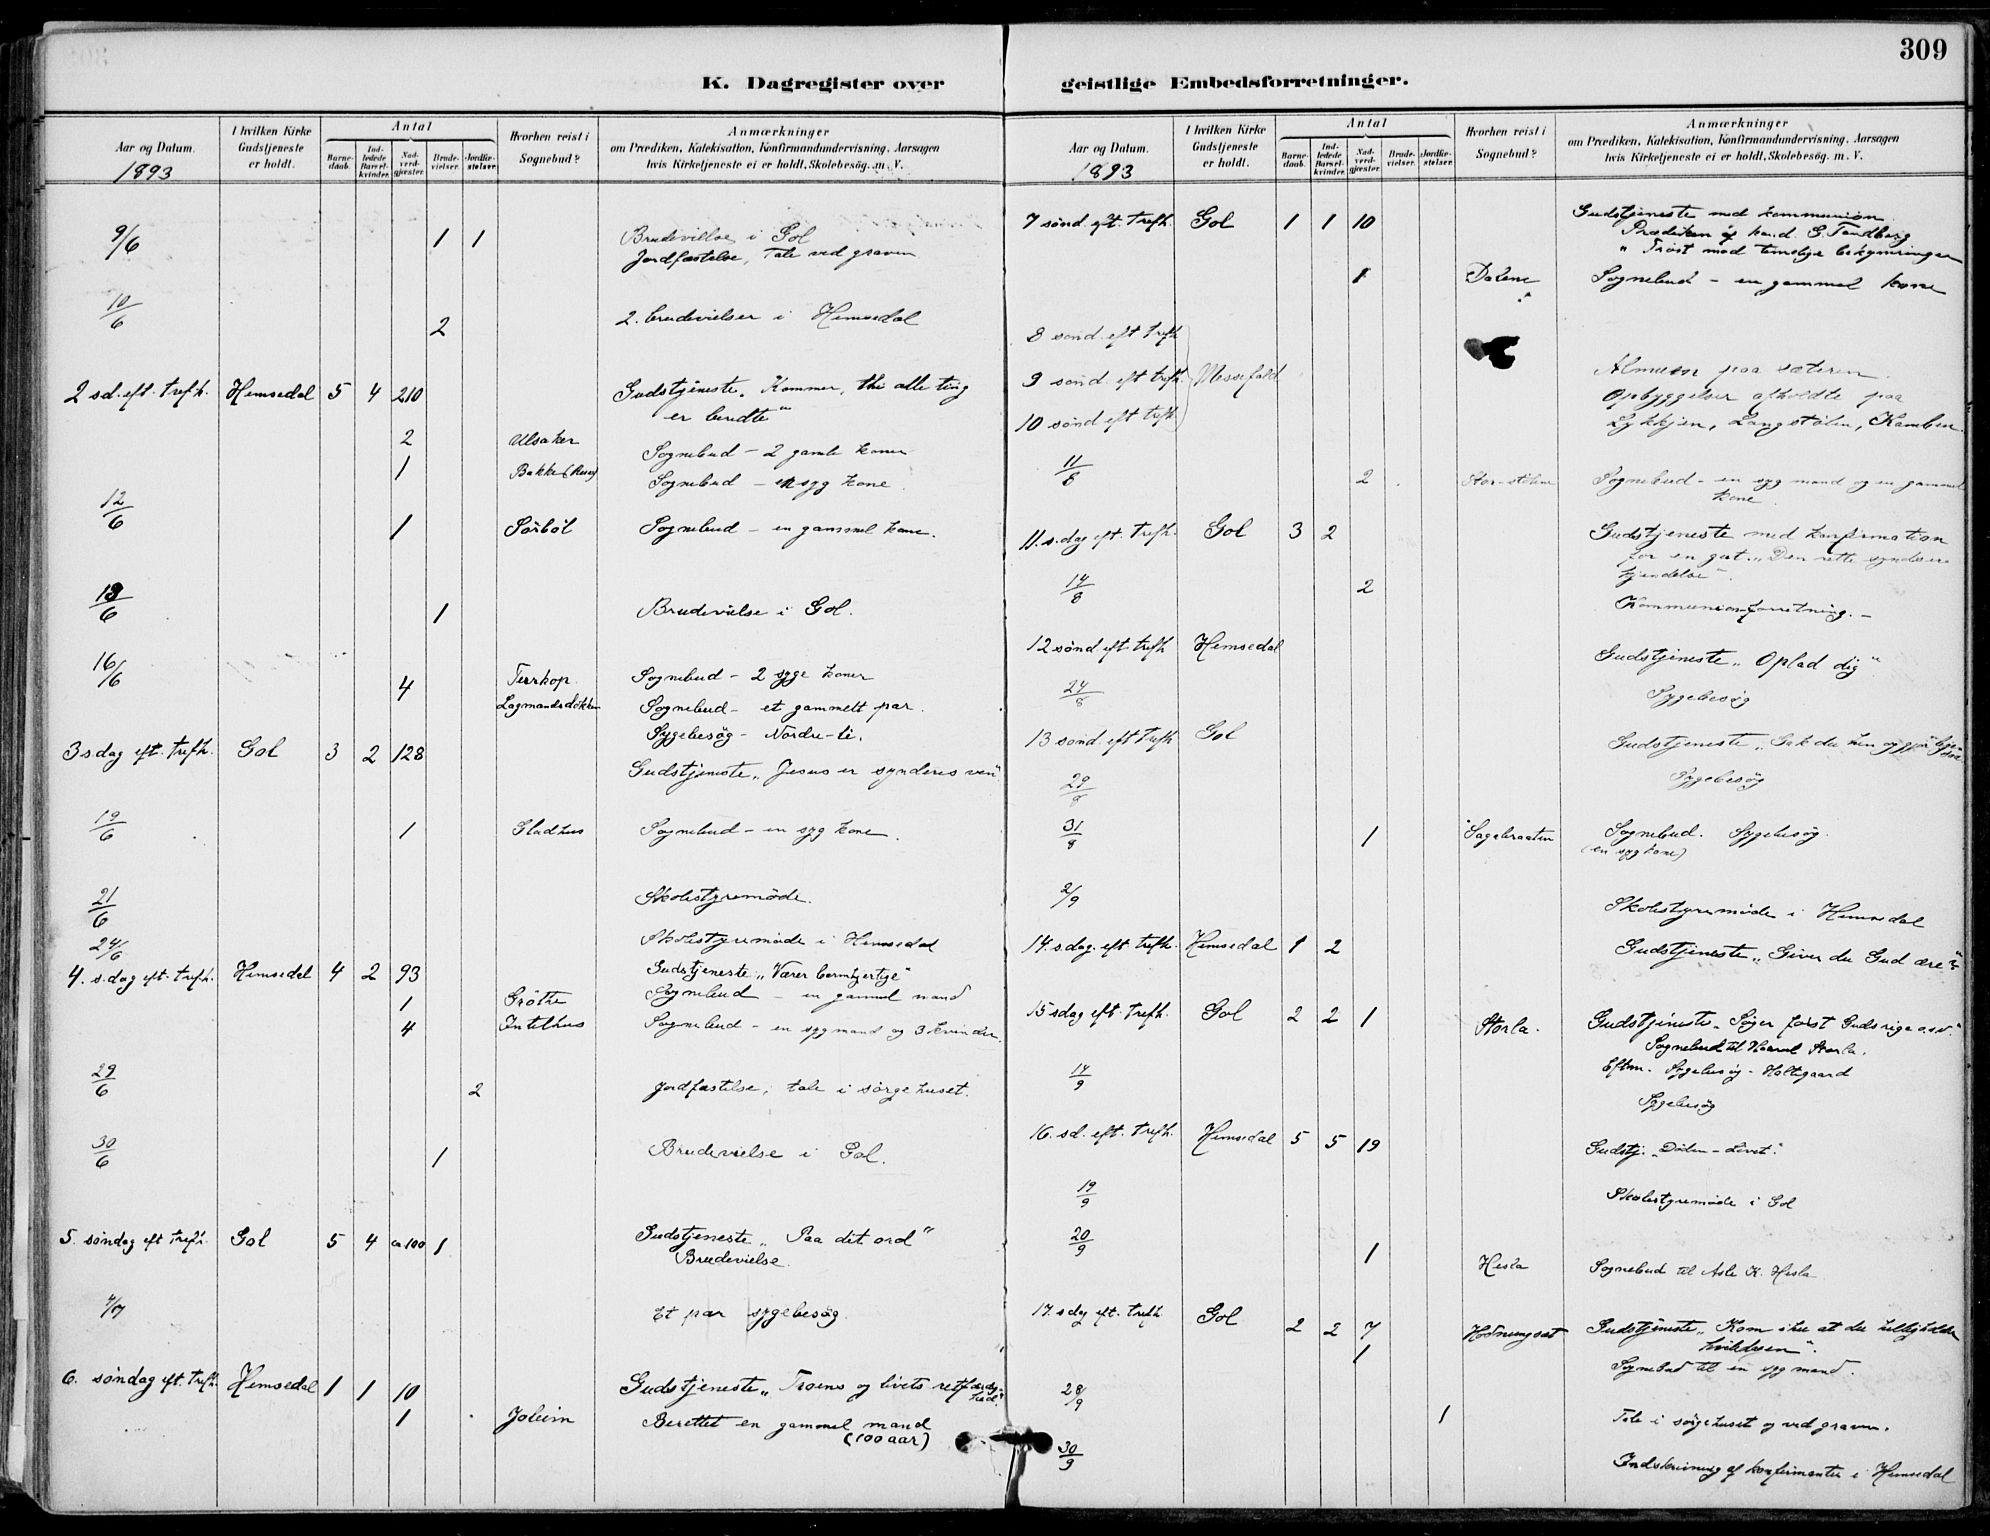 309
K. Dagregister over geistlige Embedsforretninger.
Aar og Datum.
I hvilken Kirke Gudstjeneste er holdt.
Antal
Barne-daab.
Ind-ledede Barsel-kvinder.
Nad-verd-gjæster.
Brude-vielser.
Jordfæ-stelser.
Hvorhen reist i Sognebud?
Anmærkninger
om Prædiken, Katekisation, Konfirmandundervisning, Aarsagen
hvis Kirketjeneste ei er holdt, Skolebesøg. m. V.
1893
9/6 1 1 Brudevielse i Gol
Jordfæstelse, Tale ved graven
10/6 2 2 brudevielser i Hemsedal
2 sd. eft. trefh. Hemsedal 5 4 210 Gudstjeneste „Kommer, thi alle ting
er beredte“
2 Ulsaker Sognebud – 2 gamle koner
1 Bakke Sognebud – en syg kone
12/6 1 Sørbøl Sognebud – en gammel kone.
13/6 1 Brudevielse i Gol.
16/6 4 Sognebud – 2 syge koner
Sognebud – et gammelt par.
Sygebesøg – Nordre-li.
3 sdag eft. trefh. Gol 3 2 128 Gudstjeneste „Jesus er synderes ven“
19/6 1 Gladhus Sognebud – en syg kone.
21/6 Skolestyremøde.
24/6 Skolestyremøde i Hemsedal
4. s.dag eft. trefh. Hemsedal 4 2 93 Gudstjeneste „Værer barmhjertige“
1 Grøthe Sognebud – en gammel mand
4 Intelhus Sognebud – en syg mand og 3 kvinder.
29/6 2 Jordfæstelse, tale i sørgehuset.
30/6 1 Brudevielse i Gol.
5. søndag eft trefh. Gol 5 4 ca 100 1 Gudstjeneste „Paa dit ord“
Brudevielse.
4/7 Et par sygebesøg.
6. søndag eft. trefh. Hemsedal 1 1 10 Gudstjeneste „Troens og livets retfærdighed“
1 Joleim Berettet en gammel mand
(100 aar)
Aar og Datum.
I hvilken Kirke Gudstjeneste er holdt.
Antal
Barne-daab.
Ind-ledede Barsel-kvinder.
Nad-verd-gjæster.
Brude-vielser.
Jordfæ-stelser.
Hvorhen reist i Sognebud?
Anmærkninger
om Prædiken, Katekisation, Konfirmandundervisning, Aarsagen
hvis Kirketjeneste ei er holdt, Skolebesøg. m. V.
1893
7 sønd. eft. trefh. Gol 1 1 10 Gudstjeneste med kommunion.
Prædiken af kand. G. Tandberg
„Trøst mod timelige bekymringer
1 Dalene Sognebud – en gammel kone
8 sønd. eft trefh
9 sønd. eft trefh. Messefald Almuen paa sæteren.
10 sønd eft trefh Opbyggelser afholdte paa
Lykkjen, Langstølen, Kamben.
11/8 2 Stor-stølene Sognebud – en syg mand og en gammel
kone.
11. s.dag eft. trefh. Gol 3 2 Gudstjeneste med konfirmation
for en gut. „Den rette synds er-
kjendelse“.
14/8 2 Kommunionforretning. –
12 sønd eft trefh Hemsedal Gudstjeneste „Oplad dig“
24/8 Sygebesøg
13 sønd. eft trefh Gol Gudstjeneste „Gak du hen og gjør ligesaa“
29/8 Sygebesøg
31/8 1 Sagabraaten Sognebud. Sygebesøg.
(en syg kone)
2/9 Skolestyremøde i Hemsedal
14. s.dag. eft trefh. Hemsedal 1 2 Gudstjeneste „Giver du Gud ære?“
15 sdag eft. trefh. Gol 2 2 1 Storla. Gudstjeneste „Søger først Guds rige osv.“
Sognebud til Storla.
Eftm. Sygebesøg – Holtegaard
14/9 Sygebesøg
16. sd. eft. trefh. Hemsedal 5 5 19 Gudstj. „Døden – Livet“.
19/9 Skolestyremøde i Gol
20/9 1 Hesla Sognebud til Asle K. Hesla
17. sdag eft. trefh Gol 2 2 7 Gudstjeneste „Kom ihu at du helligholder
hviledagen“.
1 Sognebud til en syg mand.
28/9 1 Tale i sørgehuset og ved graven.
30/9 Indskrivning af konfirmanter i Hemsedal